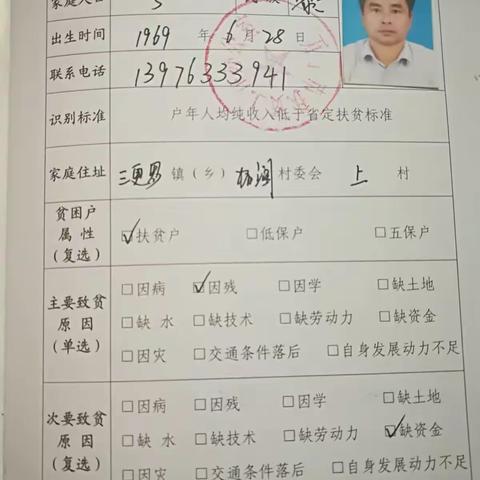 家庭人口 5
出生时间 1969 年 6 月 28 日
联系电话 13976333941
识别标准 户年人均纯收入低于省定扶贫标准
家庭住址 三更罗 镇（乡） 村委会 上 村
贫困户属性（复选） ☑扶贫户 □低保户 □五保户
主要致贫原因（单选） □因病 ☑因残 □因学 □缺土地
□缺水 □缺技术 □缺劳动力 □缺资金
□因灾 □交通条件落后 □自身发展动力不足
次要致贫原因（复选） □因病 □因残 □因学 □缺土地
□缺水 □缺技术 □缺劳动力 ☑缺资金
□因灾 □交通条件落后 □自身发展动力不足